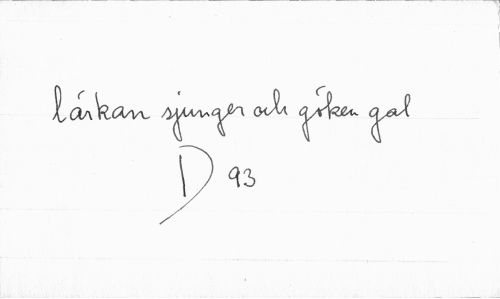 lärkan sjunger och göken gal
D 93